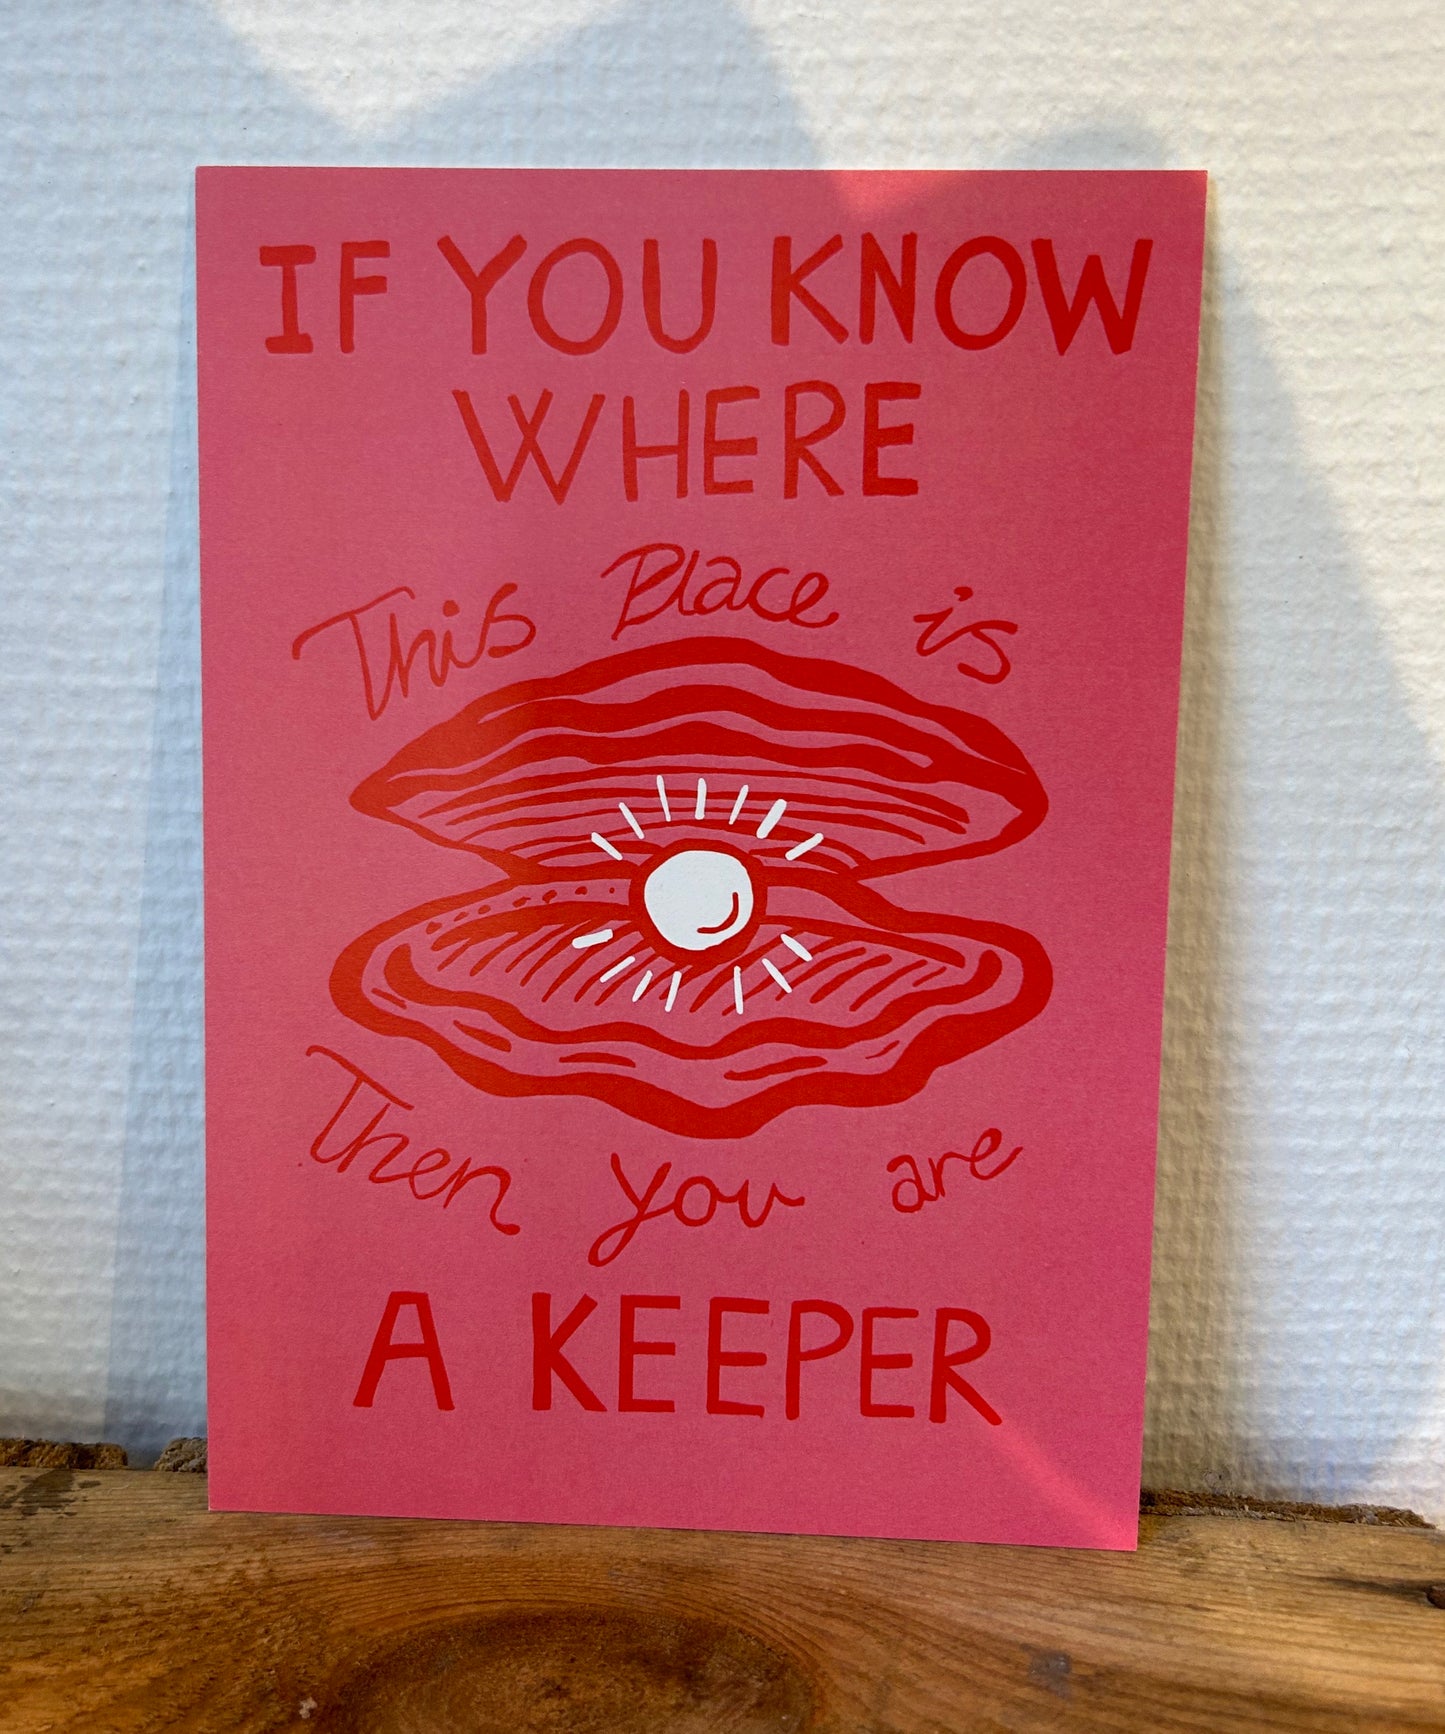 IF YOU KNOW
WHERE
This Place is
Then you are
A KEEPER